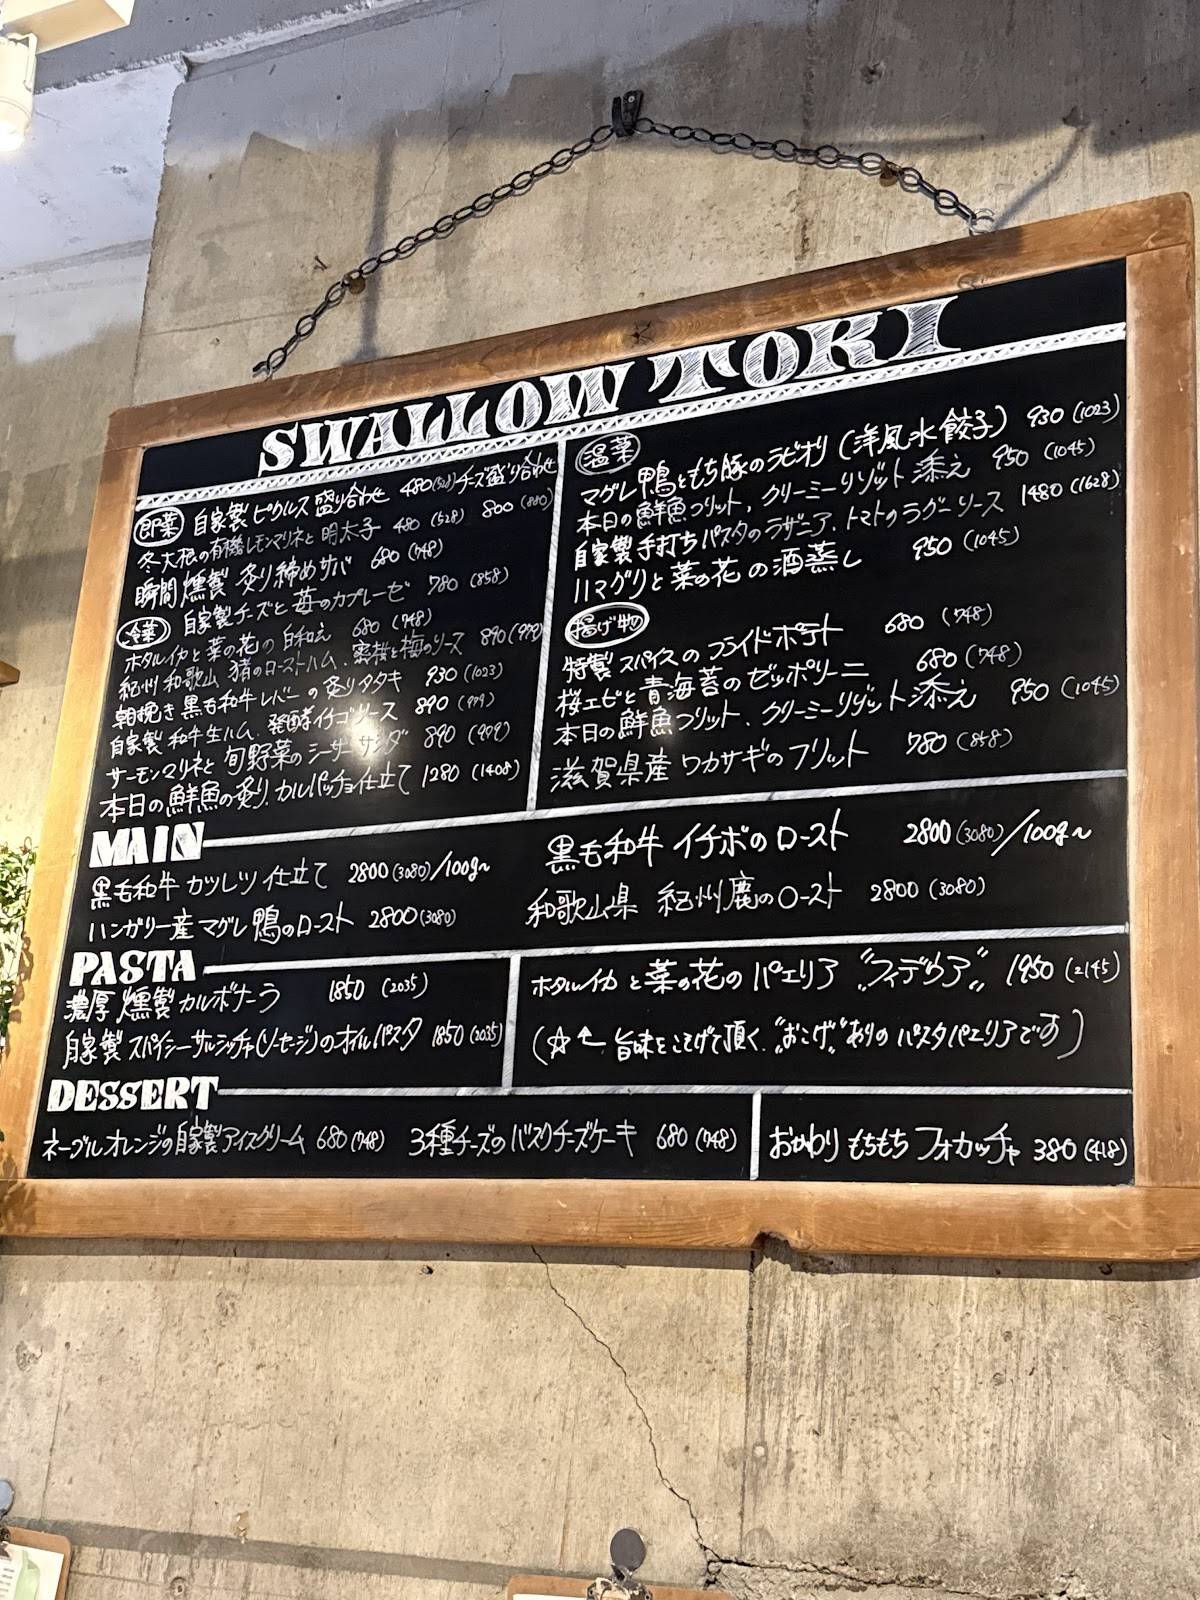 SWALLOW TOKI
即菜 自家製ピクルス盛り合わせ 480(528) チーズ盛り合わせ 800(880)
冬大根の有機レモンマリネと明太子 480(528)
瞬間燻製 炙り締めサバ 680(748)
冷菜 自家製チーズと苺のカプレーゼ 780(858)
ホタルイカと菜の花の白和え 680(748)
紀州和歌山 猪のローストハム、蜜桜と梅のソース 890(979)
朝挽き黒毛和牛レバーの炙りタタキ 930(1023)
自家製 和牛生ハム、発酵イチゴソース 890(979)
サーモンマリネと旬野菜のシーザーサラダ 890(979)
本日の鮮魚の炙り、カルパッチョ仕立て 1280(1408)
温菜
マグレ鴨ともち豚のラビオリ(洋風水餃子) 930(1023)
本日の鮮魚フリット、クリーミーリゾット添え 950(1045)
自家製手打ちパスタのラザニア、トマトのラグーソース 1480(1628)
ハマグリと菜の花の酒蒸し 950(1045)
揚げ物
特製スパイスのフライドポテト 680(748)
桜エビと青海苔のゼッポリーニ 680(748)
本日の鮮魚フリット、クリーミーリゾット添え 950(1045)
滋賀県産ワカサギのフリット 780(858)
MAIN
黒毛和牛カツレツ仕立て 2800(3080)/100g〜
黒毛和牛イチボのロースト 2800(3080)/100g〜
ハンガリー産マグレ鴨のロースト 2800(3080)
和歌山県 紀州鹿のロースト 2800(3080)
PASTA
濃厚燻製カルボナーラ 1850(2035)
自家製スパイシーサルシッチャ(ソーセージ)のオイルパスタ 1850(2035)
ホタルイカと菜の花のパエリア"フィデウア" 1950(2145)
(☆← 旨味をこそげて頂く、"おこげ"ありのパスタパエリアです)
DESSERT
ネーブルオレンジの自家製アイスクリーム 680(748) 3種チーズのバスクチーズケーキ 680(748)
おかわりもちもちフォカッチャ 380(418)